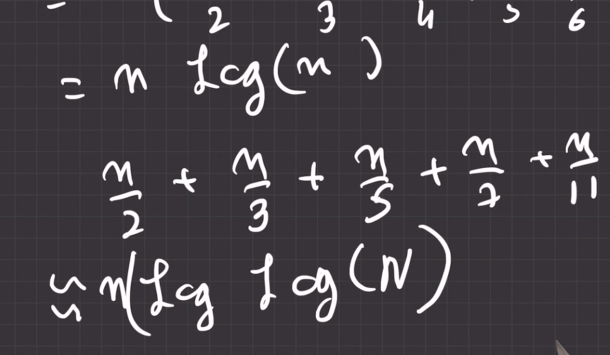 = ( 2 3 4 5 6
= n Log(n)
n/2 + n/3 + n/5 + n/7 + n/11
≈ n(Log Log(N)